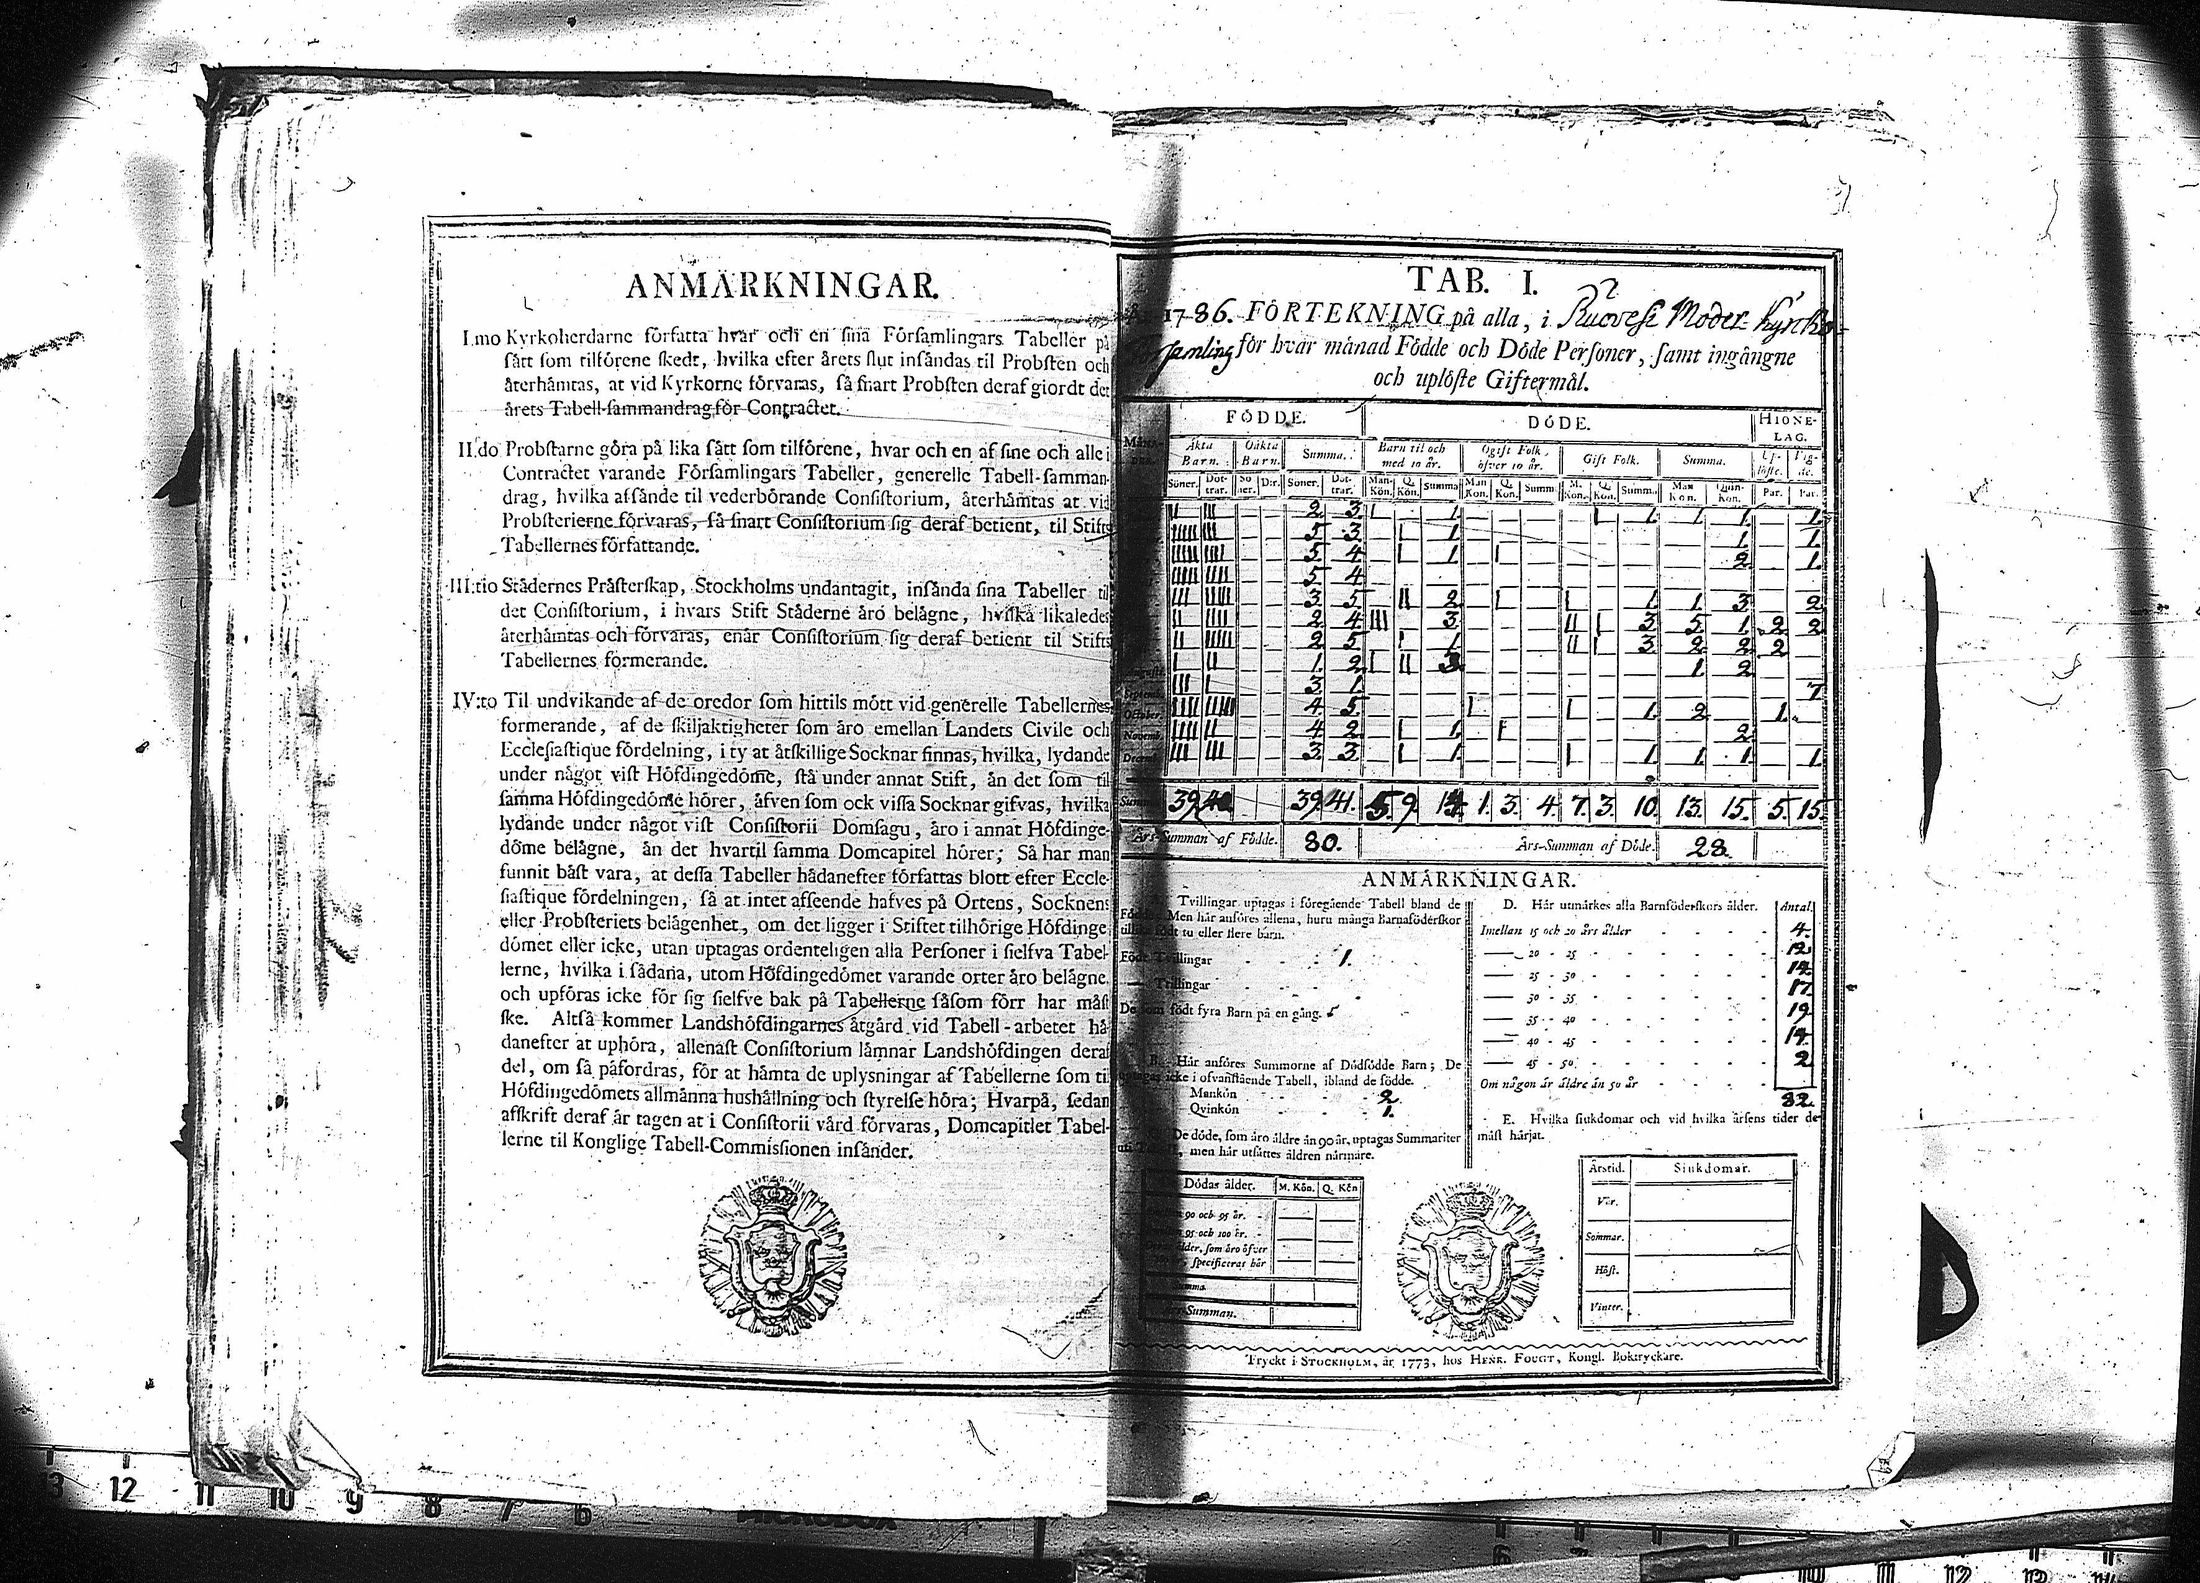 ANMÄRKNINGAR.
I.mo Kyrkoherdarne författa hvar och en sina Församlingars Tabeller på
sätt som tilförene skedt, hvilka efter årets slut insändas til Probsten och
återhämtas, at vid Kyrkorne förvaras, så snart Probsten deraf giordt det
årets Tabell-sammandrag för Contractet.
II.do Probstarne göra på lika sätt som tilförene, hvar och en af sine och alle i
Contractet varande Församlingars Tabeller, generelle Tabell-samman-
drag, hvilka afsände til vederbörande Consistorium, återhämtas at vid
Probsterierne förvaras, så snart Consistorium sig deraf betient, til Stifts
Tabellernes författande.
III:tio Städernes Prästerskap, Stockholms undantagit, insända sina Tabeller til
det Consistorium, i hvars Stift Städerne äro belägne, hvilka likaledes
återhämtas och förvaras, enär Consistorium sig deraf betient til Stifts
Tabellernes formerande.
IV:to Til undvikande af de oredor som hittils mött vid generelle Tabellernes
formerande, af de skiljaktigheter som äro emellan Landets Civile och
Ecclesiastique fördelning, i ty at åtskillige Socknar finnas, hvilka, lydande
under något vist Höfdingedöme, stå under annat Stift, än det som til
samma Höfdingedöme hörer, äfven som ock vissa Socknar gifvas, hvilka
lydande under något vist Consistorii Domsagu, äro i annat Höfdinge-
döme belägne, än det hvartil samma Domcapitel hörer; Så har man
funnit bäst vara, at dessa Tabeller hädanefter författas blott efter Eccle-
siastique fördelningen, så at intet afseende hafves på Ortens, Socknens
eller Probsteriets belägenhet, om det ligger i Stiftet tilhörige Höfdinge
dömet eller icke, utan uptagas ordenteligen alla Personer i sielfva Tabel-
lerne, hvilka i sådana, utom Höfdingedömet varande orter äro belägne,
och upföras icke för sig sielfve bak på Tabellerne såsom förr har måst
ske. Altså kommer Landshöfdingarnes åtgärd vid Tabell-arbetet hä-
danefter at uphöra, allenast Consistorium lämnar Landshöfdingen deraf
del, om så påfordras, för at hämta de uplysningar af Tabellerne som til
Höfdingedömets allmänna hushållning och styrelse höra; Hvarpå, sedan
afskrift deraf är tagen at i Consistorii vård förvaras, Domcapitlet Tabel-
lerne til Konglige Tabell-Commissionen insänder.
TAB. I.
1786. FÖRTEKNING på alla, i Ruovesi Moder-Kyrko-
samling för hvar månad Födde och Döde Personer, samt ingångne
och uplöste Giftermål.
FÖDDE. DÖDE. HIONE-
LAG.
Äkta Barn. Oäkta Barn. Summa. Barn til och med 10 år. Ogift Folk, öfver 10 år. Gift Folk. Summa. Up-löste. Vig-de.
Söner. Döt-trar. Sö-ner. D:r. Söner. Döt-trar. Man-Kön. Q. Kön. Summa Man Kon. Q. Kön. Summ M. Kon. Q. Kön. Summa Man Kon. Quin-kon. Par. Par.
II III — — 2. 3. I 1. — — — — I 1. 1. 1. — 1.
IIIII III — — 5. 3. — I 1. — — — — — — — 1. — 1.
IIIII IIII — — 5. 4. — I 1. — I — — — — — 2. — 1.
IIIII IIII — — 5. 4.
III IIIII — — 3. 5. — II 2. — I — I — 1. 1. 3. — 2.
II IIII — — 2. 4. III — 3. — — — II I 3. 5. 1. 2. 2.
II IIIII — — 2. 5. — I 1. — — — II I 3. 2. 2. 2.
I II — — 1. 2. I II 3. — — — — — — 1. 2.
Septemb. III I — — 3. 1. 7
October. IIII IIIII — — 4. 5. I — — I — 1. 2. — 1.
Novemb. IIII II — — 4. 2. — I 1. — I — — — — — 2.
Decemb. III III — — 3. 3. — I 1. — — — I — 1. 1. 1. — 1.
39. 39. 41. 5. 9. 14. 1. 3. 4. 7. 3. 10. 13. 15. 5. 15.
Års-Summan af Födde. 80. Års-Summan af Döde. 28.
ANMÄRKNINGAR.
Tvillingar uptagas i föregående Tabell bland de
Födde. Men här anföres allena, huru många Barnaföderskor
födt tu eller flere barn.
Tvillingar - - - 1.
Trillingar - - -
De som födt fyra Barn på en gång.
B. Här anföres Summorne af Dödfödde Barn; De
uptagas icke i ofvanstående Tabell, ibland de födde.
Mankön - - - 2.
Qvinkön - - - 1.
De döde, som äro äldre än 90 år, uptagas Summariter
men här utsättes åldren närmare.
Dödas ålder. M. Kön. Q. Kön
90 och 95 år. -
95 och 100 år. -
ålder, som äro öfver
specificeras här
Summan.
D. Här utmärkes alla Barnföderskors ålder. Antal.
Imellan 15 och 20 års ålder - - - 4.
— 20 - 25 - - - 12.
— 25 - 30 - - - 14.
— 30 - 35 - - - 17.
— 35 - 40 - - - 19.
— 40 - 45 - - - 14.
— 45 - 50 - - - 2.
Om någon är äldre än 50 år - - -
82.
E. Hvilka siukdomar och vid hvilka årsens tider de
mäst härjat.
Årstid. Siukdomar.
Vår.
Sommar.
Höst.
Vinter.
Tryckt i STOCKHOLM, år 1773, hos HENR. FOUGT, Kongl. Boktryckare.
13 12 11 10 9 8 7 6
6 10 11 12 13 14